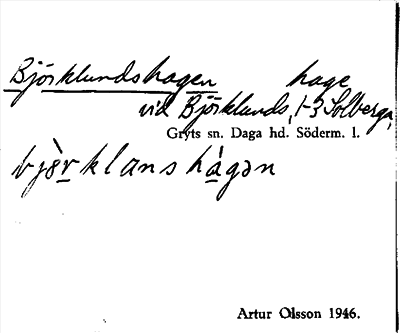 Björklundshagen hage
vid Björklunds, 1-3 Solberga,
Gryts sn. Daga hd. Söderm. l.
bjö̀rklanshágən
Artur Olsson 1946.